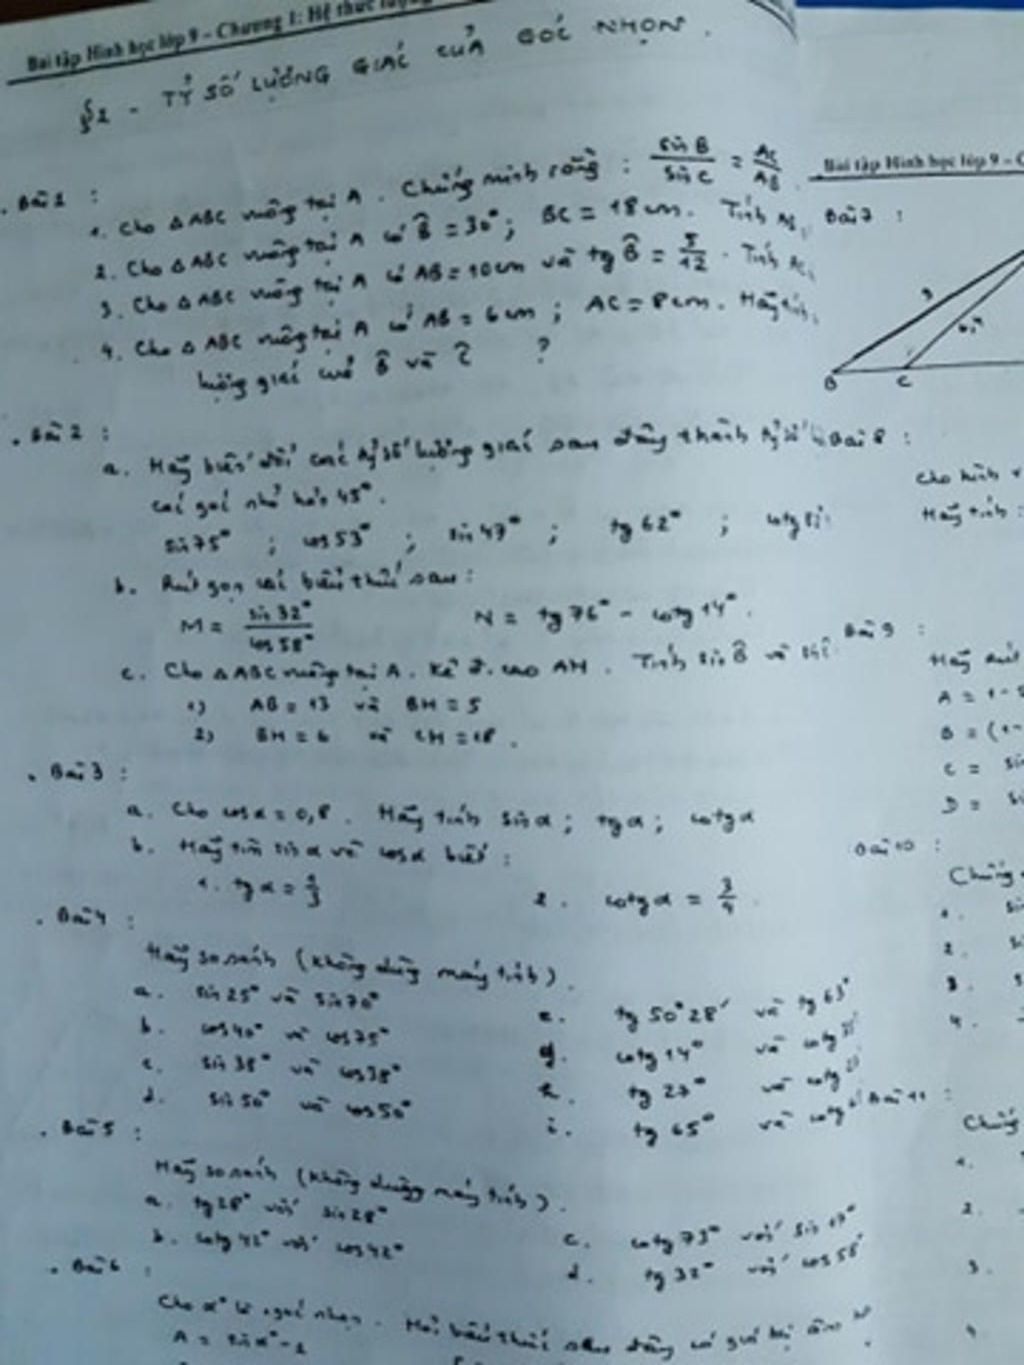 Bài tập Hình học lớp 9 – Chương 1: Hệ thức lượng
§2 - TỶ SỐ LƯỢNG GIÁC CỦA GÓC NHỌN.
. Bài 1 :
1. Cho △ABC vuông tại A. Chứng minh rằng : sin B / sin C = AC / AB.
2. Cho △ABC vuông tại A có B̂ = 30°; BC = 18 cm. Tính AB,
3. Cho △ABC vuông tại A có AB = 10cm và tg B̂ = 5/12. Tính AC,
4. Cho △ABC vuông tại A có AB = 6cm ; AC = 8cm. Hãy tính
lượng giác của B̂ và Ĉ ?
. Bài 2 :
a. Hãy biến đổi các tỷ số lượng giác sau đây thành tỷ số
các góc nhỏ hơn 45°.
sin 75° ; cos 53° ; sin 47° ; tg 62° ; cotg
b. Rút gọn các biểu thức sau :
M = sin 32° / cos 58° N = tg 76° - cotg 14°.
c. Cho △ABC vuông tại A. Kẻ đ. cao AH. Tính sin B̂ và
1) AB = 13 và BH = 5
2) BH = 6 và CH = 18.
. Bài 3 :
a. Cho cos α = 0,8. Hãy tính sin α ; tg α ; cotg α
b. Hãy tìm sin α và cos α biết :
1. tg α = 1/3 2. cotg α = 3/4.
. Bài 4 :
Hãy so sánh (không dùng máy tính).
a. sin 25° và sin 70° e. tg 50°28' và tg 63°
b. cos 40° và cos 75° g. cotg 14° và cotg
c. sin 38° và cos 38° h. tg 27° và cotg
d. sin 50° và cos 50° i. tg 65° và cotg
. Bài 5 :
Hãy so sánh (không dùng máy tính).
a. tg 28° với sin 28° c. cotg 73° với sin 17°
b. cotg 42° với cos 42° d. tg 32° với cos 58°
. Bài 6 :
Cho α° là góc nhọn. Hỏi biểu thức sau đây có giá trị âm
A = sin α° - 1
Bài tập Hình học lớp 9 – C
Bài 7 :
9
B C
Bài 8 :
Cho hình
Hãy tính :
Bài 9 :
Hãy rút
A = 1 -
B = (1 -
C = sin
D =
Bài 10 :
Chứng
1.
2.
3.
4.
Bài 11 :
Chứng
1.
2.
3.
4